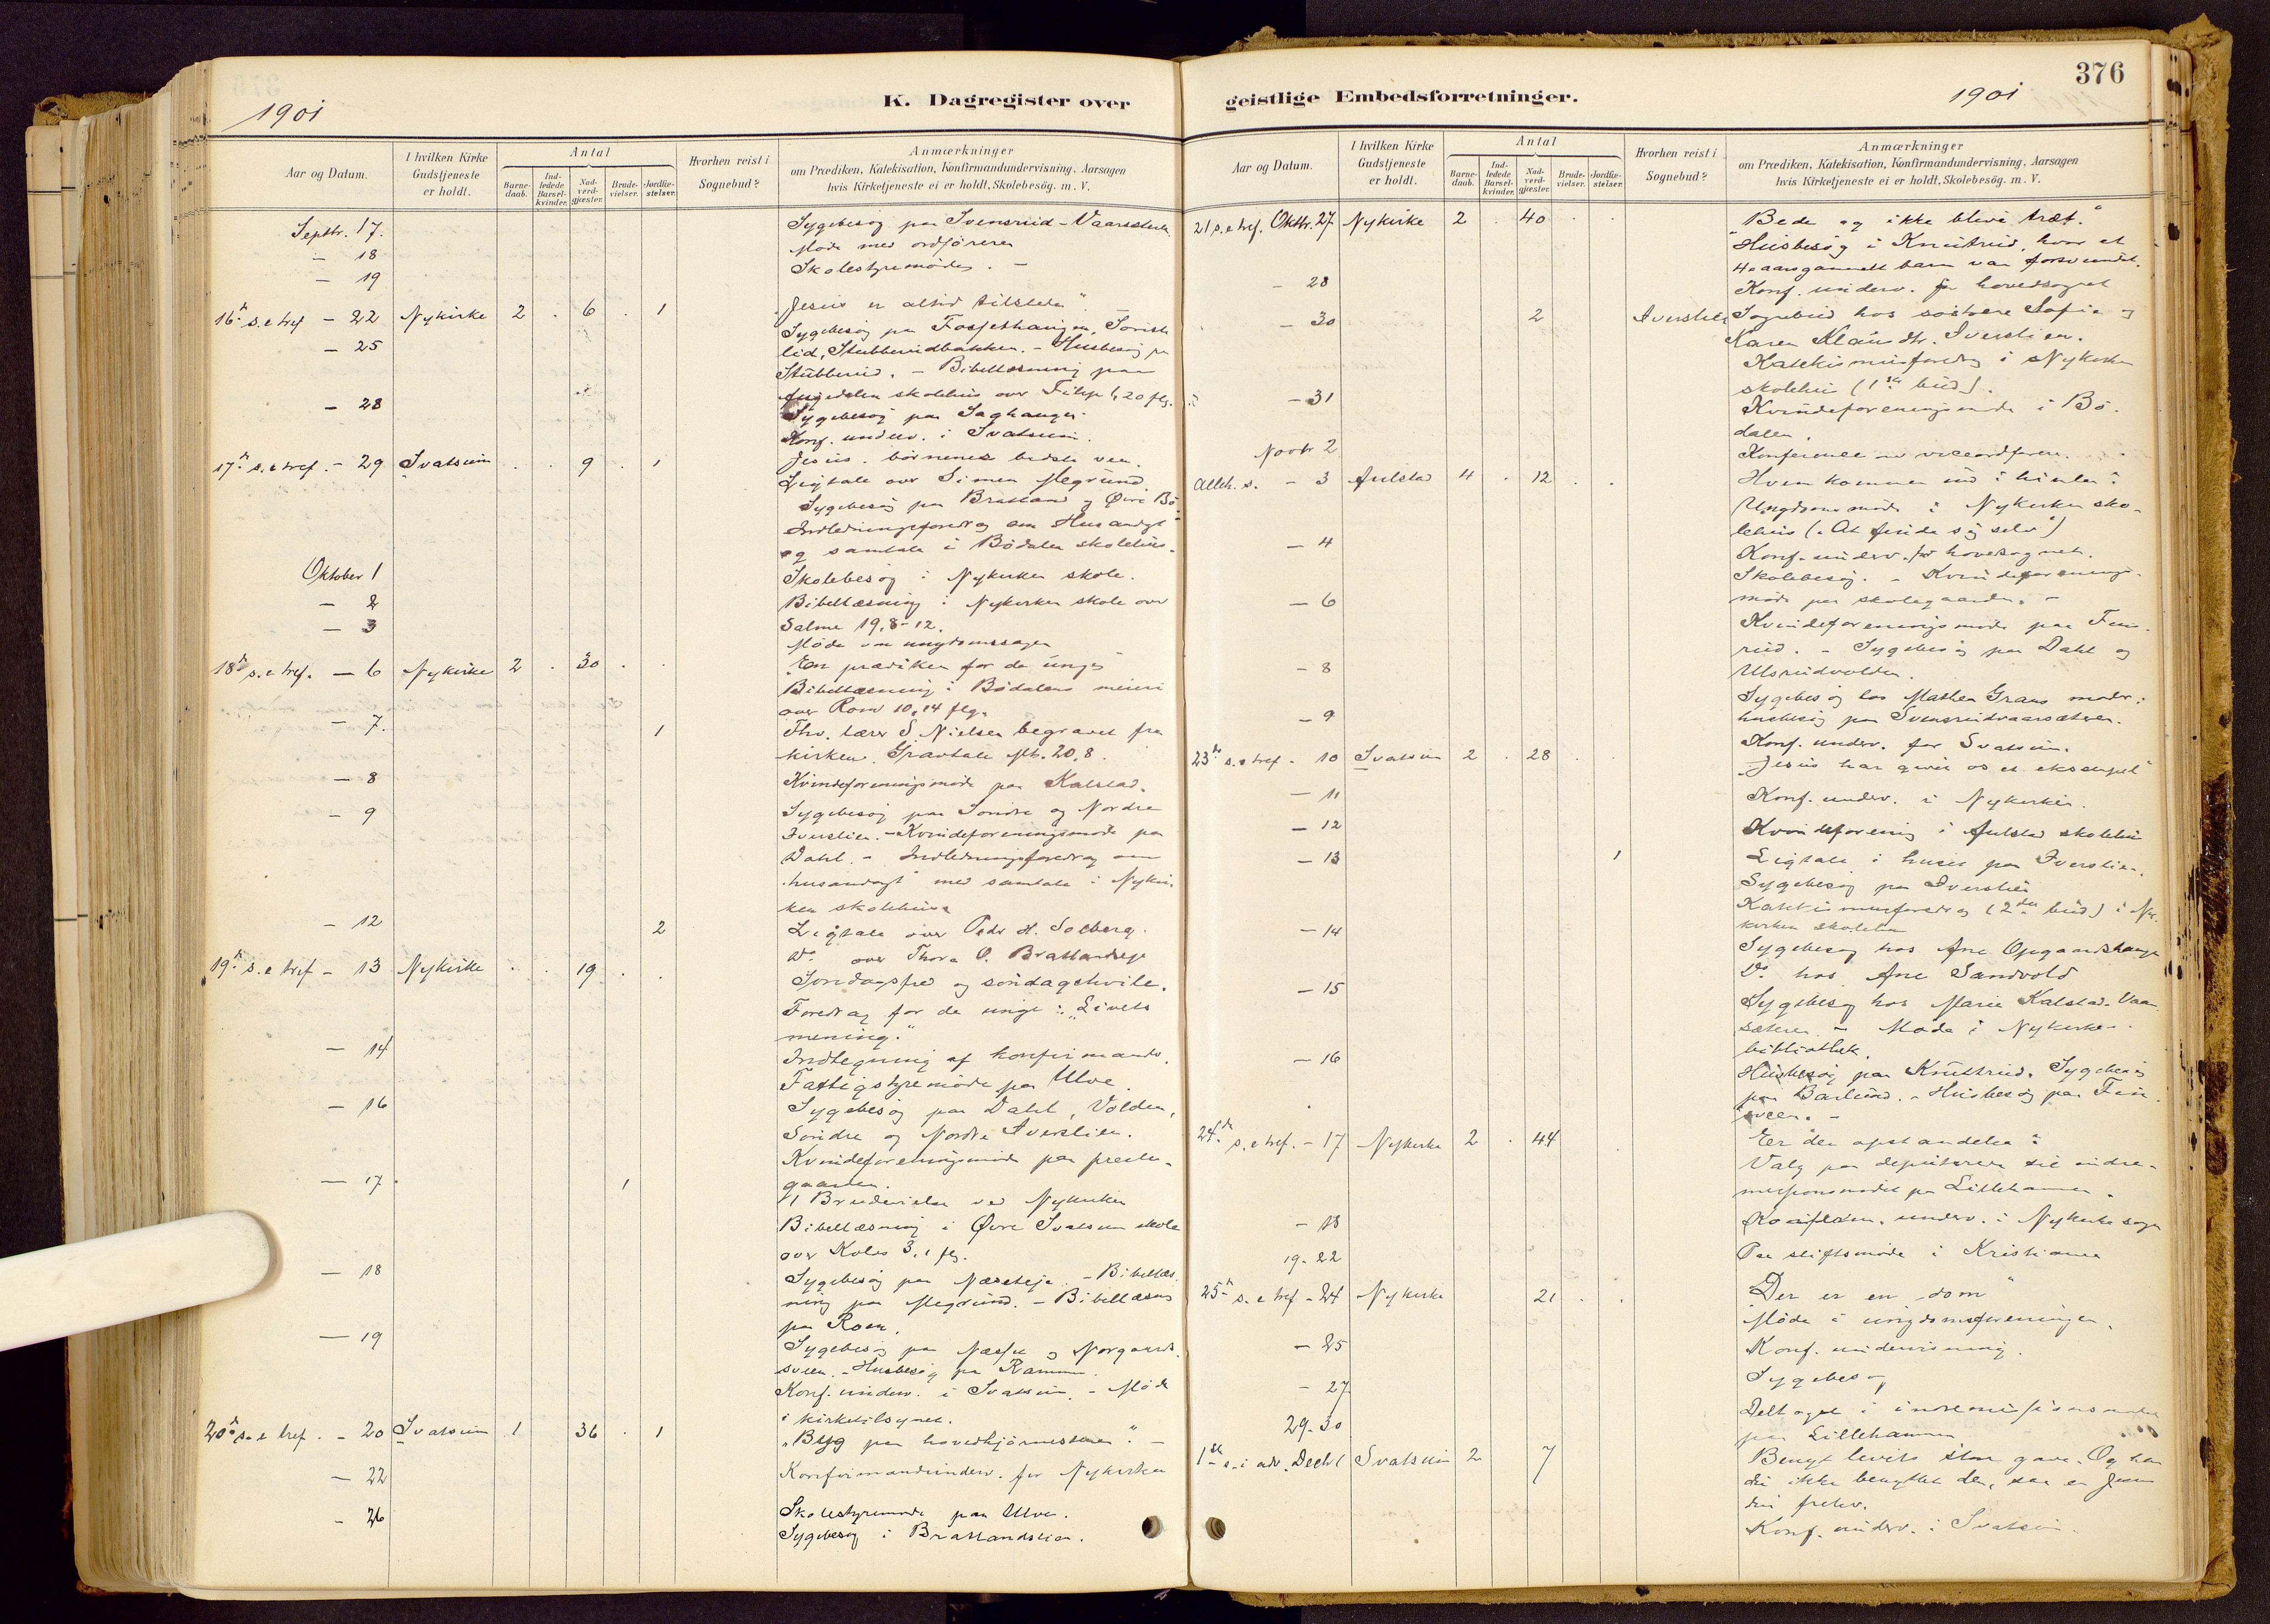 1901
K. Dagregister over
Aar og Datum.
I hvilken Kirke
Gudstjeneste
er holdt.
Antal
Barne-
daab.
Ind-
ledede
Barsel-
kvinder.
Nad-
verd-
gjæster.
Brude-
vielser.
Jordfæ-
stelser.
Hvorhen reist i
Sognebud?
Anmærkninger
om Prædiken, Katekisation, Konfirmandundervisning, Aarsagen
hvis Kirketjeneste ei er holdt, Skolebesøg. m. V.
Septbr. 17. Sygebesøg paa Svensrud-Vaarsæteren.
- 18 Møde med ordføreren
- 19 Skolestyremøde. -
16de s. e tref - 22 Nykirke 2 . 6 . 1 "Jesus er altid tilstede"
- 25 Sygebesøg paa Fossjethaugen,
lid, Stubberudbakken. - Husbesøg paa
Stubberud. - Bibellæsning paa
skolehus over Filip 1,20 flg.
- 28 Sygebesøg paa Saghaugen.
Konf. underv. i Svatsum.
17de s. e tref. - 29 Svatsum . . 9 . 1 Jesus. børnenes bedste ven.
Ligtale over Simen Megrund.
Sygebesøg paa Bratland og Øvre Bø
Indledningsforedrag om Husandagt
og samtale i Bødalen skolehus.
Oktober 1 Skolebesøg i Nykirken skole.
- 2 Bibellæsning i Nykirken skole over
- 3 Salme 19,8-12.
Møde om ungdomssagen
18de s. e tref. - 6 Nykirke 2 . 30 . . "En prædiken for de unge"
Bibellæsning i Bødalens meieri
over Rom 10,14 flg.
- 7. 1 Fhv. lærer S. Nielsen begravet fra
kirken. Gravtale Mt. 20,8.
- 8 Kvindeforeningsmøde paa Kalstad.
- 9 Sygebesøg paa Søndre og Nordre
Iverslien. - Kvindeforeningsmøde paa
Dahl. - Indledningsforedrag om
"husandagt" med samtale i Nykir-
ken skolehus
- 12 2 Ligtale over Peder H. Solberg.
Do over Thora O. Bratlandseje
19de s. e tref - 13 Nykirke . . 19 . . Søndagsfred og søndagshvile.
Foredrag for de unge: "Livets
mening."
- 14 Indtegning af konfirmander.
Fattigstyremøde paa Ulve.
- 16 Sygebesøg paa Dahl, Volden,
Søndre og Nordre Iverslien.
Kvindeforeningsmøde paa preste-
gaarden.
- 17. 1 1 Brudevielse ved Nykirken
Bibellæsning i Øvre Svatsum skole
over Kolos 3,1 flg.
- 18 Sygebesøg paa Næseteje. - Bibellæs
ning paa Megrund. - Bibellæsning
paa Roen.
- 19 Sygebesøg paa og Norgaards-
sveen. - Husbesøg paa Ramme.
Konf. underv. i Svatsum. - Møde
i kirketilsynet.
20de s. e tref. - 20 Svatsum 1 36 . 1 "Byg paa hovedhjørnestenen". -
- 22 Konfirmandunderv. for Nykirken
- 26 Skolestyremøde paa Ulve.
Sygebesøg i Bratlandslien.
geistlige Embedsforretninger.
1901
376
Aar og Datum.
I hvilken Kirke
Gudstjeneste
er holdt.
Antal
Barne-
daab.
Ind-
ledede
Barsel-
kvinder.
Nad-
verd-
gjæster.
Brude-
vielser.
Jordfæ-
stelser.
Hvorhen reist i
Sognebud?
Anmærkninger
om Prædiken, Katekisation, Konfirmandundervisning, Aarsagen
hvis Kirketjeneste ei er holdt, Skolebesøg. m. V.
21 s. e tref. Oktbr. 27 Nykirke 2 . 40 . . "Bede og ikke blive træt."
Husbesøg i Knutrud, hvor et
4 aarsgammelt barn var forsvundet.
- 28 Konf. underv. for hovedsognet
- 30 2 Iverslien Sognebud hos søstrene Sofie og
Karen Klausdtr. Iverslien.
Katekismusforedrag i Nykirken
skolehus (1ste bud).
- 31 Kvindeforeningsmøde i Bø-
dalen.
Novbr 2 Konference med viceordføren.
Alleh. s. - 3 Aulstad 4 . 12 . . Hvem kommer ind i himlen?
Ungdomsmøde i Nykirken sko-
lehus ("At finde sig selv")
- 4 Konf. underv. for hovesognet.
Skolebesøg. - Kvindeforenings-
- 6 møde paa skolegaarden. -
Kvindeforeningsmøde paa
rud. - Sygebesøg paa Dahl og
- 8 Ulsrudvolden.
Sygebesøg hos Mathea Grans moder;
- 9 husbesøg paa Svensrudvaarsæteren.
Konf. underv. for Svatsum.
23de s. e tref - 10 Svatsum 2 . 28 . . "Jesus har givet os et eksempel"
- 11 Konf. underv. i Nykirken.
- 12 Kvindeforening i Aulstad skolehus
- 13 1 Ligtale i huset paa Iverslien.
Sygebesøg paa Iverslien
Katekismusforedrag (2det bud) i Ny-
kirken skolehus
- 14 Sygebesøg hos Ane Opgaardshaugen
Do hos Ane Sandvold
- 15 Sygebesøg hos Marie Kalstad-Vaar
sæteren - Møde i Nykirken
bibliothek.
- 16 Husbesøg paa Knutrud. Sygebesøg
paa Barlund. - Husbesøg paa
sveen. -
24de s. e tref. - 17 Nykirke 2 . 44 . "Er der opstandelse?
Valg paa deputerede til indre-
missionsmødet paa Lillehammer.
- 18 Konfirm. underv. i Nykirke sogn
19-22 Paa stiftsmøde i Kristiania
25de s. e tref - 24 Nykirke 21 . . "Der er en dom"
Møde i ungdomsforeningen.
- 25 Konf. undervisning.
- 27 Sygebesøg
29-30 Deltaget i indremissionsmøde
paa Lillehammer
1ste s. i adv. Decbr 1 Svatsum 2 7 Benyt livets store gave. Og har
du ikke benyttet den, saa er Jesus
din frelser.
Konf. underv. i Svatsum.